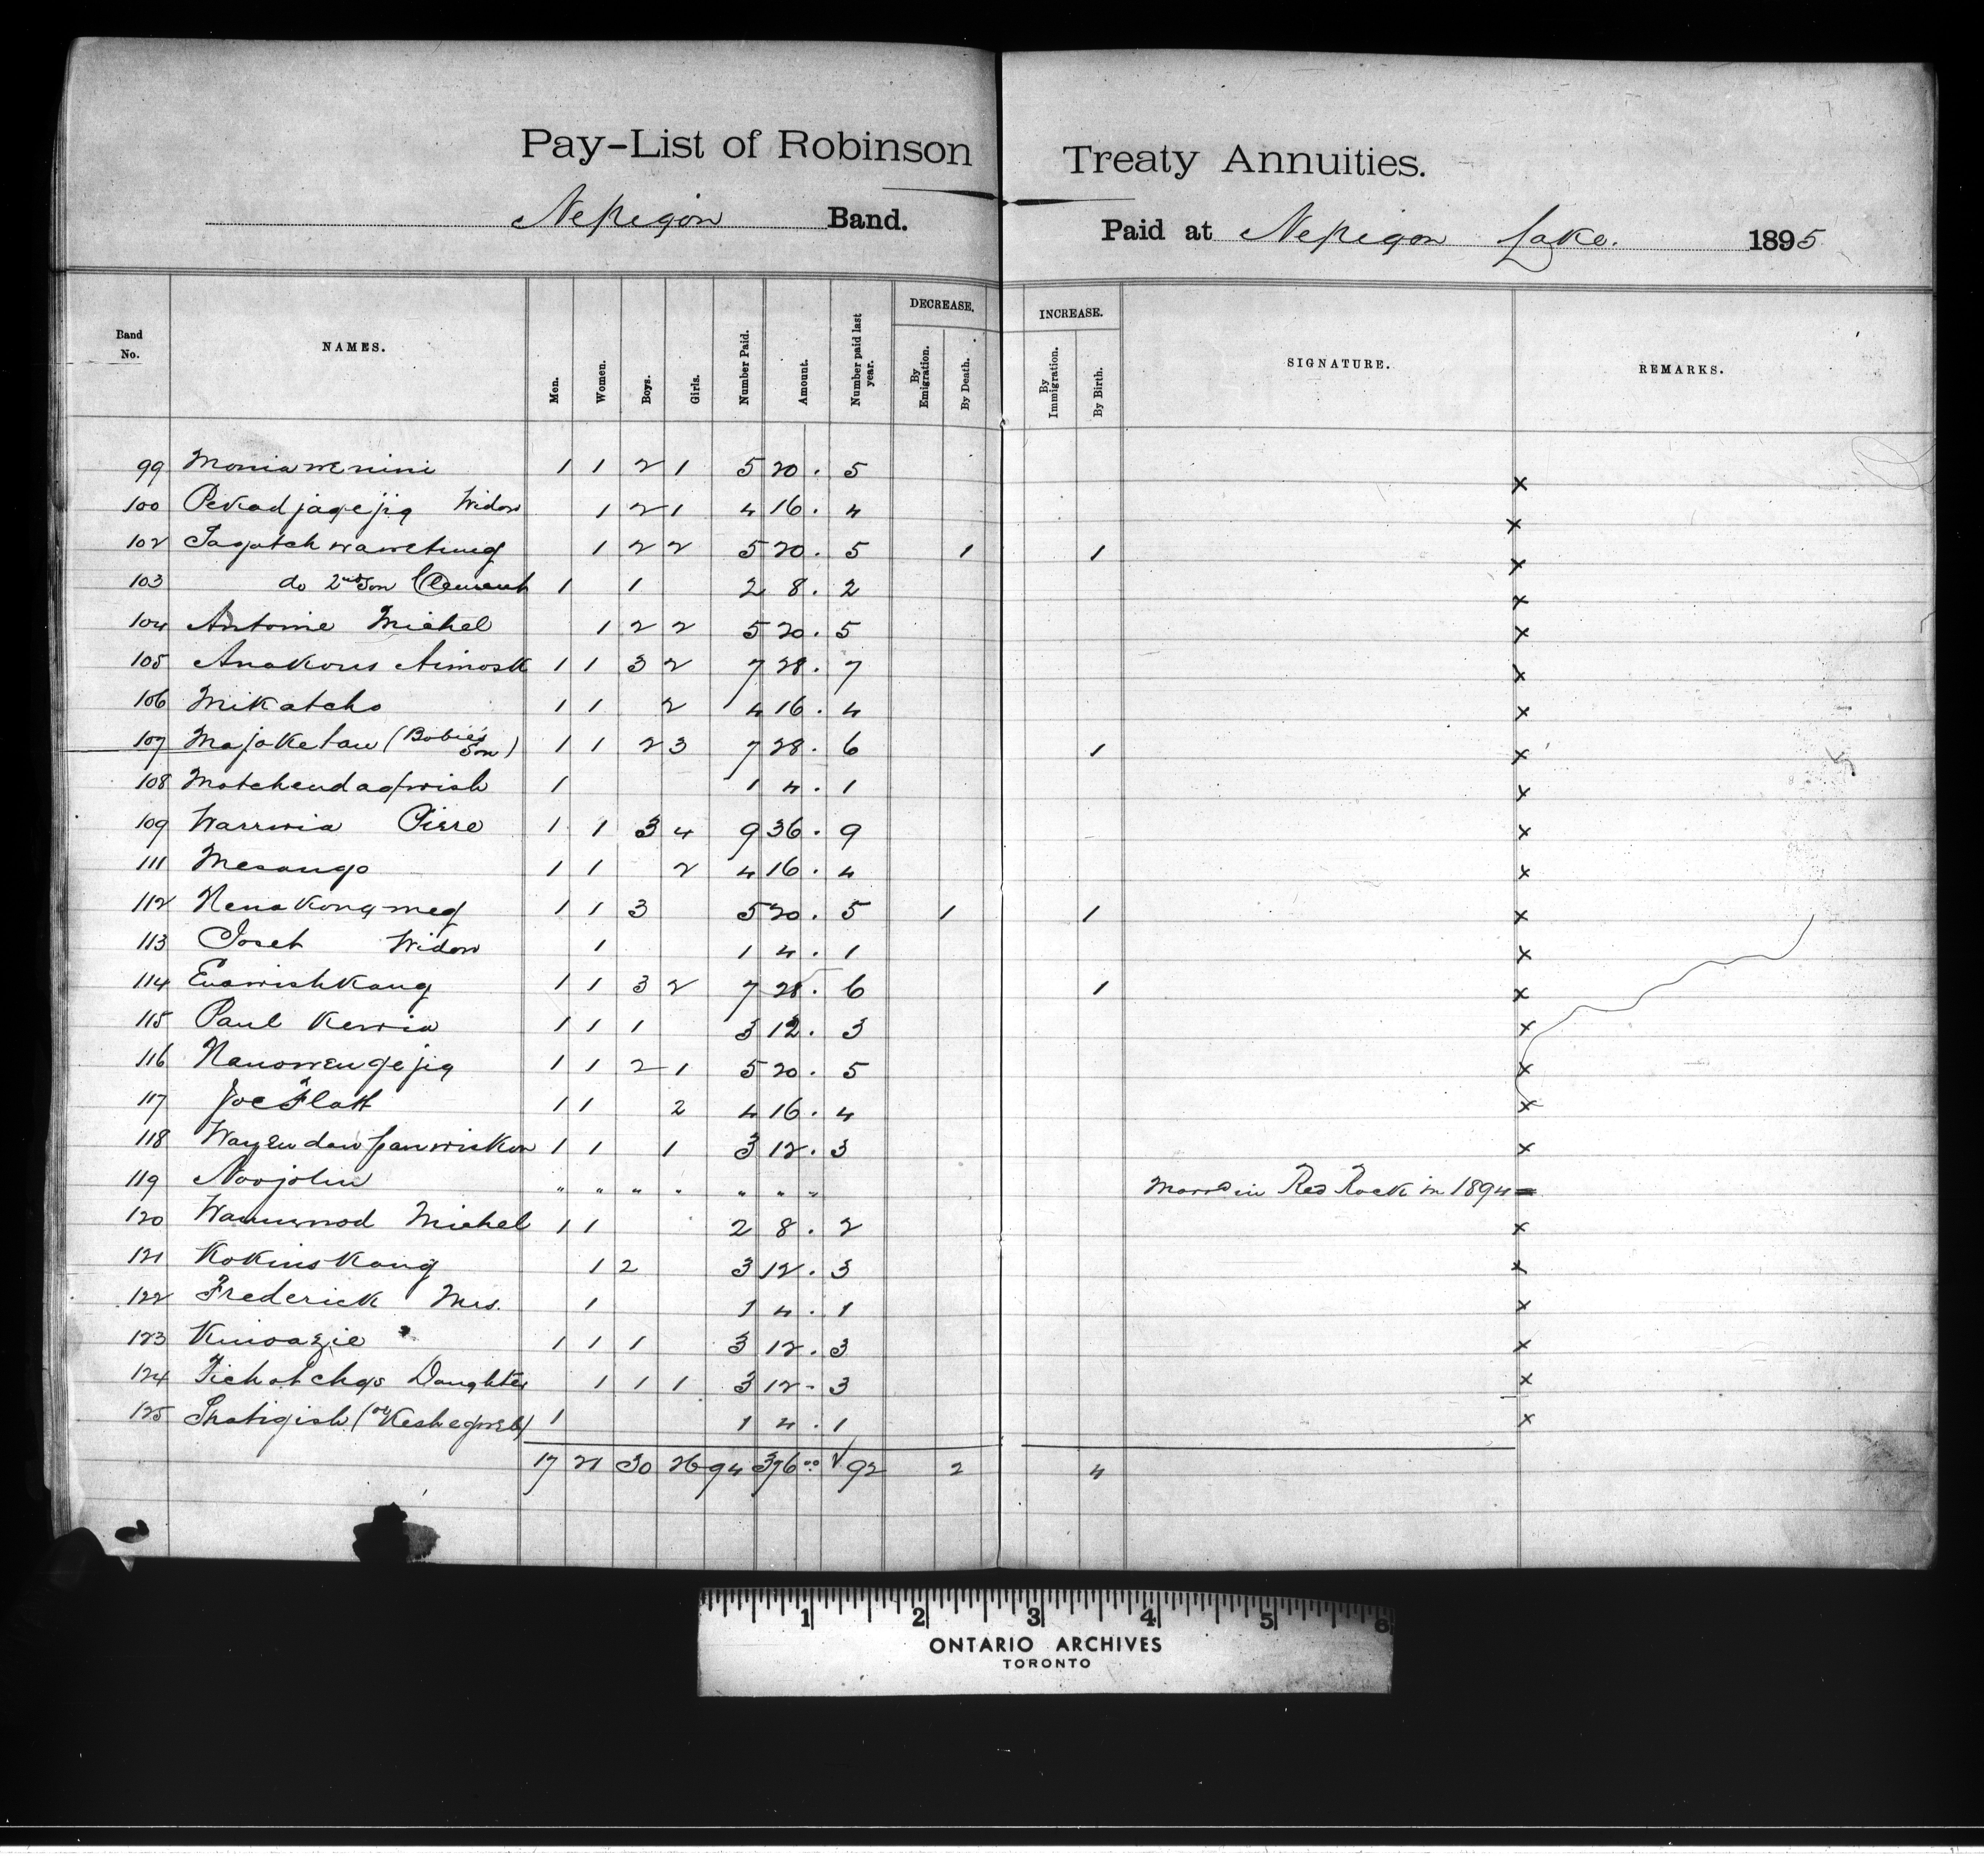 Pay-List of Robinson Treaty Annuities.
Nepigon Band. Paid at Nepigon Lake. 1895
DECREASE. INCREASE.
Band No. NAMES. Men. Women. Boys. Girls. Number Paid. Amount. Number paid last year. By Emigration. By Death. By Immigration. By Birth. SIGNATURE. REMARKS.
99 Moniawenini 1 1 2 1 5 20. 5 x
100 Pekadjagejig Widow 1 2 1 4 16. 4 x
102 Sagatchwawetung 1 2 2 5 20. 5 1 1 x
103 do 2nd Son Clement 1 1 2 8. 2 x
104 Antoine Michel 1 2 2 5 20. 5 x
105 Anakous Aimosk 1 1 3 2 7 28. 7 x
106 Mikatcho 1 1 2 4 16. 4 x
107 Majaketau (Bobie's Son) 1 1 2 3 7 28. 6 1 x
108 1 1 4. 1 x
109 Wawwia Pierre 1 1 3 4 9 36. 9 x
111 Mesaugo 1 1 2 4 16. 4 x
112 Nenakongmeg 1 1 3 5 20. 5 1 1 x
113 Joset Widow 1 1 4. 1 x
114 Euawishkang 1 1 3 2 7 28. 6 1 x
115 Paul Kewia 1 1 1 3 12. 3 x
116 Nanowengejig 1 1 2 1 5 20. 5 x
117 Joe Flatt 1 1 2 4 16. 4 x
118 1 1 1 3 12. 3 x
119 Noojohn " " " " " " " Marrd in Red Rock in 1894
120 Michel 1 1 2 8. 2 x
121 Kokinskang 1 2 3 12. 3 x
122 Frederick Mrs. 1 1 4. 1 x
123 Kinoazie 1 1 1 3 12. 3 x
124 Tichatchgo Daughter 1 1 1 3 12- 3 x
125 Shatigish (or 1 1 4. 1 x
17 21 30 26 94 376 00 √ 92 2 4
1 2 3 4 5 6
ONTARIO ARCHIVES
TORONTO